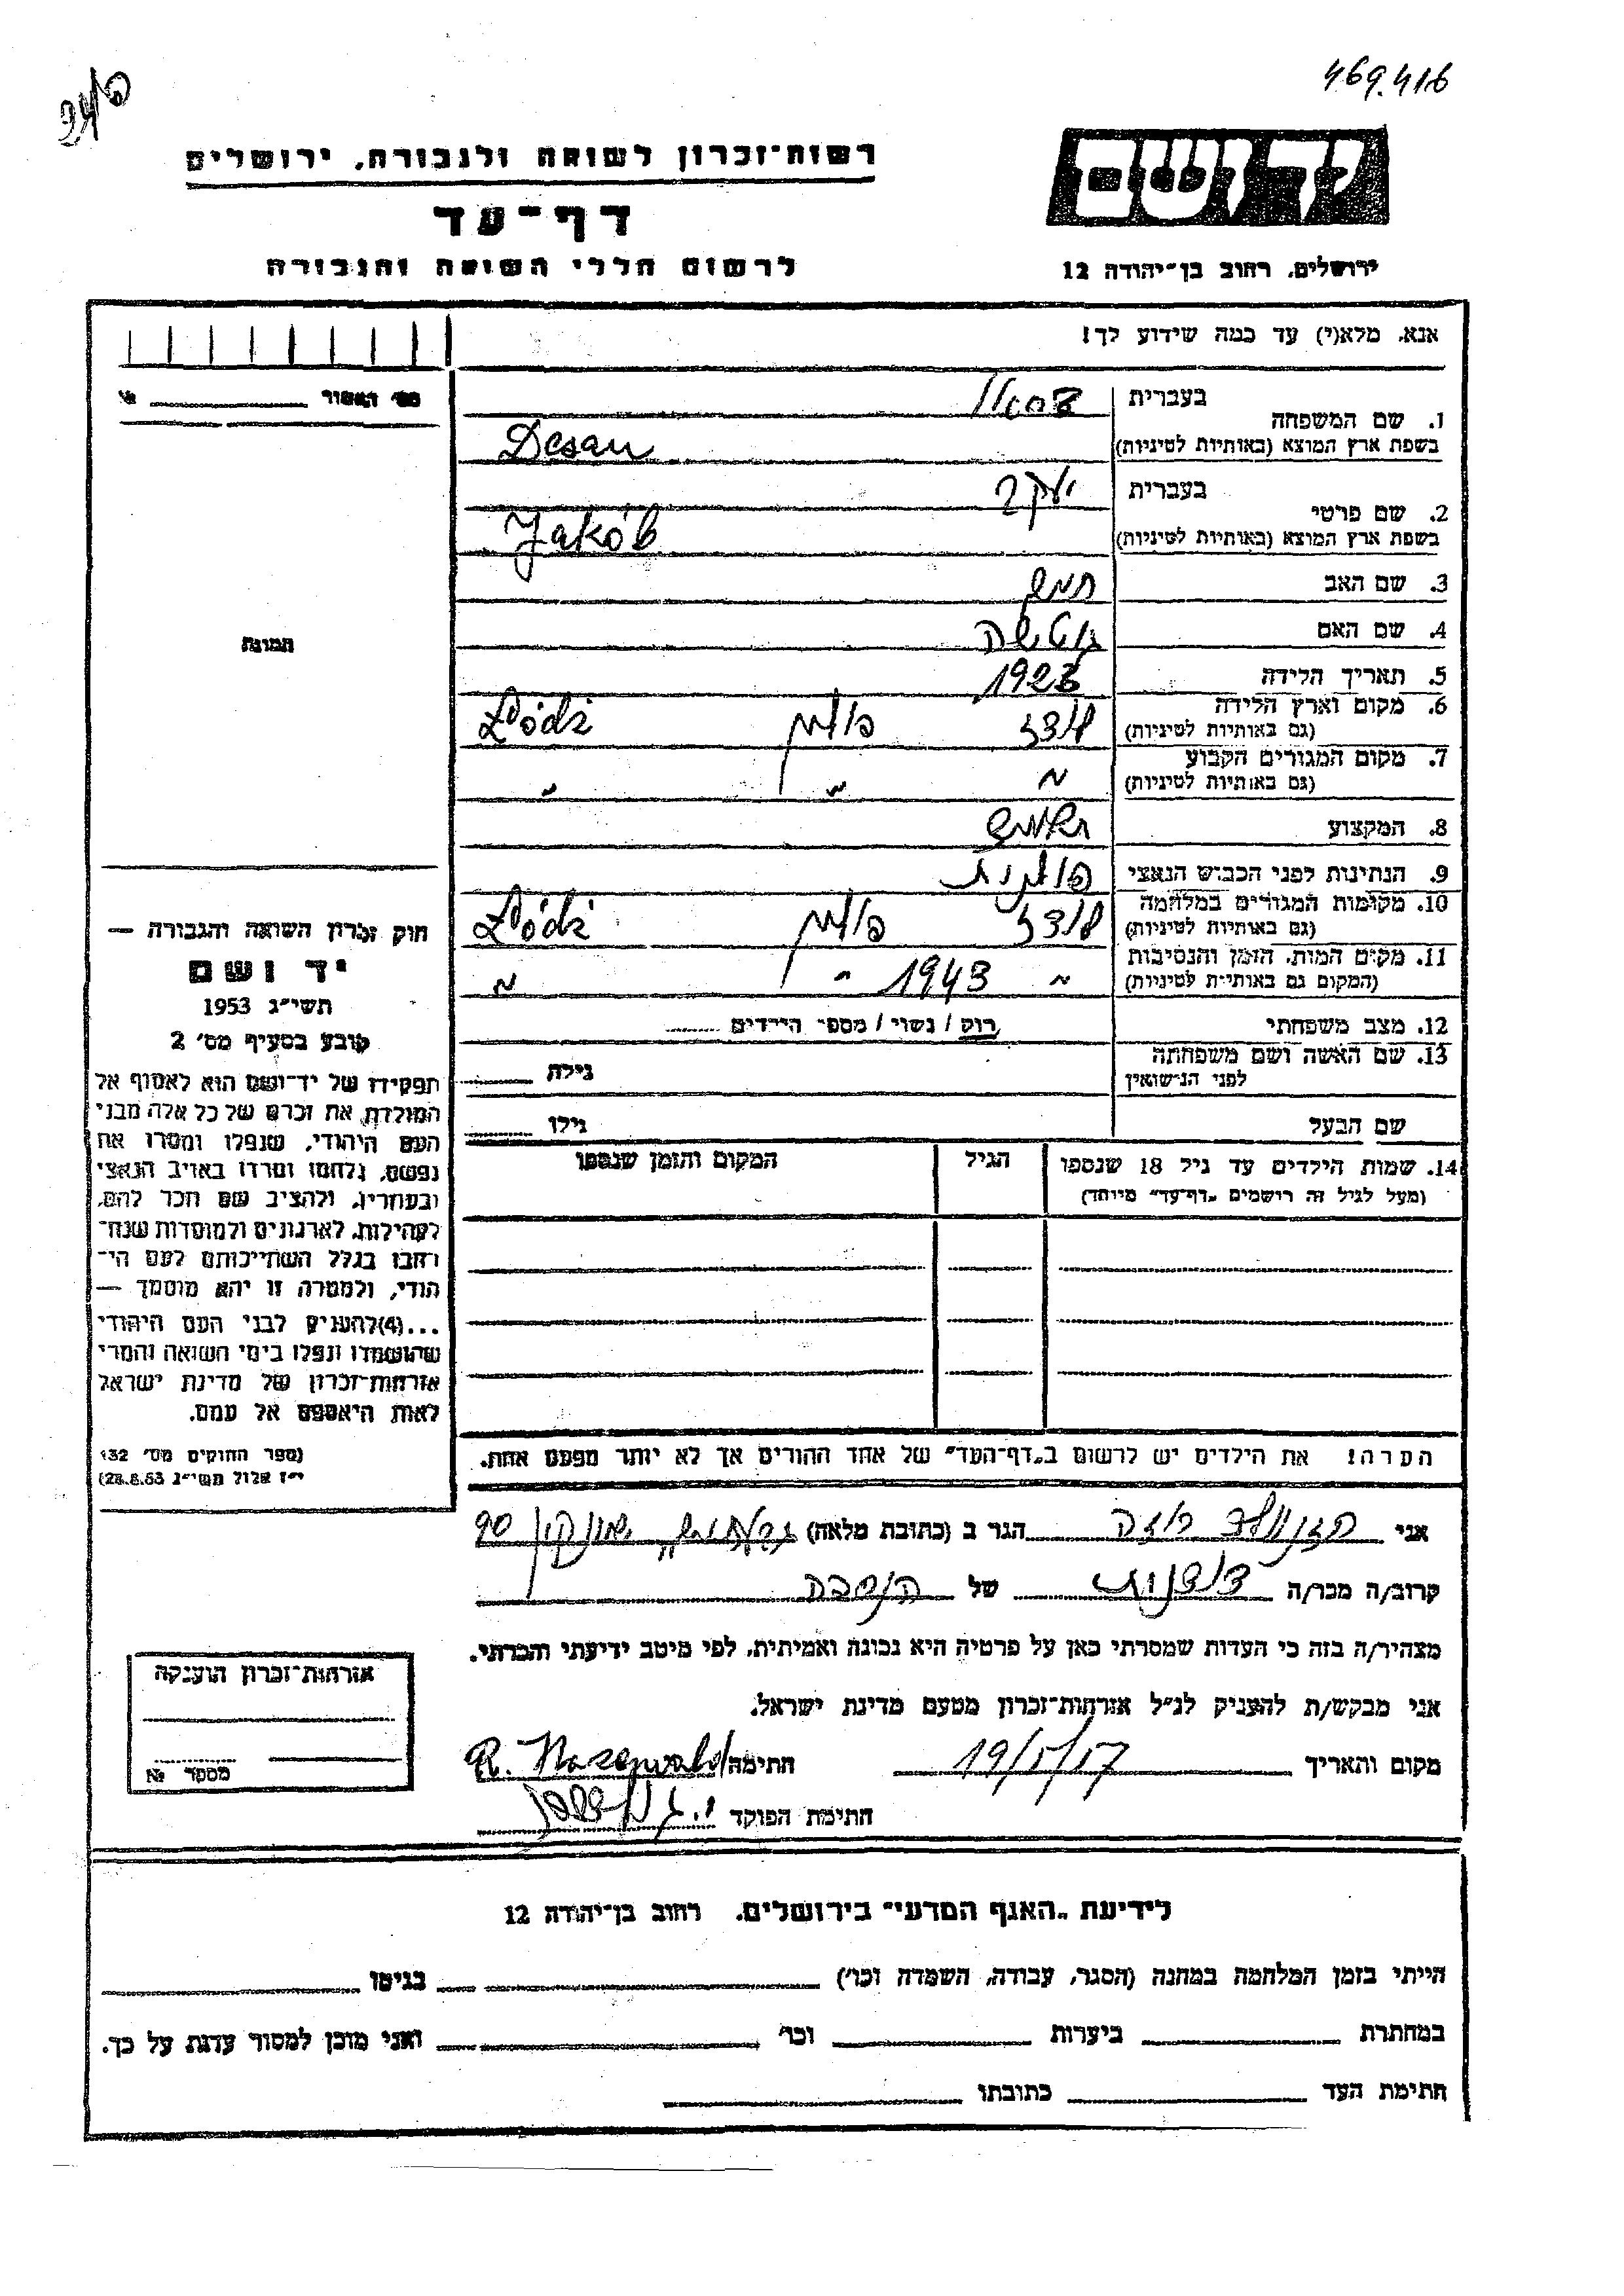 469.416
יד ושם
רשות-זכרון לשואה ולגבורה, ירושלים
דף-עד
לרשום חללי השואה והגבורה
ירושלים, רחוב בן-יהודה 12
אנא, מלא(י) עד כמה שידוע לך!
מס' האשור №
1. שם המשפחה
בעברית
בשפת ארץ המוצא (באותיות לטיניות) Desau
2. שם פרטי
בעברית יעקב
בשפת ארץ המוצא (באותיות לטיניות) Jakób
3. שם האב
4. שם האם
5. תאריך הלידה 1923
6. מקום וארץ הלידה (גם באותיות לטיניות) לודז' פולין Łódź
7. מקום המגורים הקבוע (גם באותיות לטיניות) " " "
8. המקצוע
9. הנתינות לפני הכבוש הנאצי פולנית
10. מקומות המגורים במלחמה (גם באותיות לטיניות) לודז' פולין Łódź
11. מקום המות, הזמן והנסיבות (המקום גם באותיות לטיניות) " 1943 " "
12. מצב משפחתי רוק / נשוי / מספר הילדים
13. שם האשה ושם משפחתה לפני הנשואין גילה
שם הבעל גילו
14. שמות הילדים עד גיל 18 שנספו הגיל המקום והזמן שנספו
(מעל לגיל זה רושמים "דף-עד" מיוחד)
הערה! את הילדים יש לרשום ב"דף-העד" של אחד ההורים אך לא יותר מפעם אחת.
תמונה
חוק זכרון השואה והגבורה —
יד ושם
תשי"ג 1953
קובע בסעיף מס' 2
תפקידו של יד-ושם הוא לאסוף אל
המולדת את זכרם של כל אלה מבני
העם היהודי, שנפלו ומסרו את
נפשם, נלחמו ומרדו באויב הנאצי
ובעוזריו, ולהציב שם וזכר להם,
לקהילות, לארגונים ולמוסדות שנח-
רבו בגלל השתייכותם לעם הי-
הודי, ולמטרה זו יהא מוסמך —
...(4) להעניק לבני העם היהודי
שהושמדו ונפלו בימי השואה והמרי
אזרחות-זכרון של מדינת ישראל
לאות היאספם אל עמם.
(ספר החוקים מס' 132
י"ז אלול תשי"ג 28.8.53)
אני רוזה הגר ב (כתובת מלאה) 90
קרוב/ה מכר/ה של
מצהיר/ה בזה כי העדות שמסרתי כאן על פרטיה היא נכונה ואמיתית, לפי מיטב ידיעתי והכרתי.
אני מבקש/ת להעניק לנ"ל אזרחות-זכרון מטעם מדינת ישראל.
מקום והאריך 19/5/57 חתימה
חתימת הפוקד
אזרחות-זכרון הוענקה
מספר №
לידיעת "האגף המדעי" בירושלים, רחוב בן-יהודה 12
הייתי בזמן המלחמה במחנה (הסגר, עבודה, השמדה וכו') בגיטו
במחתרת ביערות וכו' ואני מוכן למסור עדות על כך.
חתימת העד כתובתו